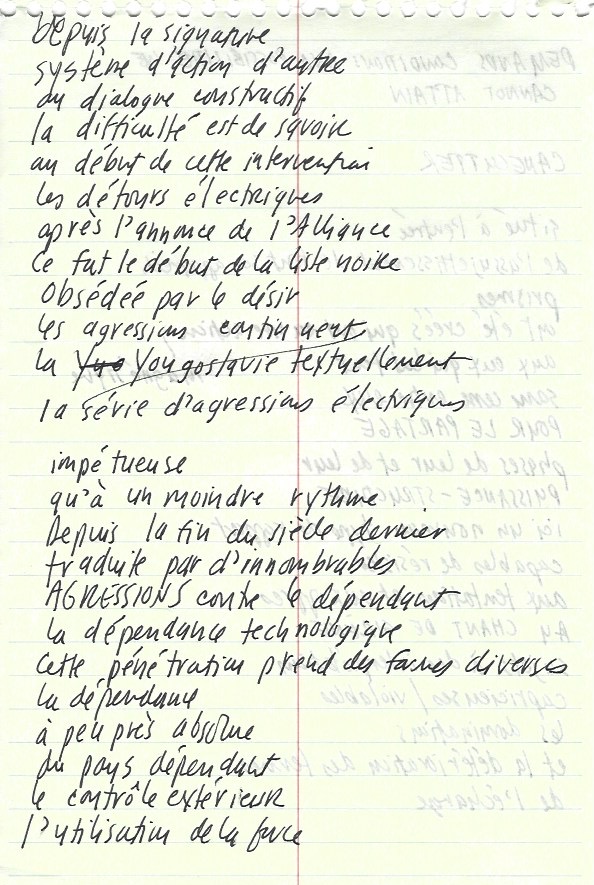 Depuis la signature
système d'action d'autre
du dialogue constructif
la difficulté est de savoir
au début de cette intervention
les détours électriques
après l'annonce de l'Alliance
Ce fut le début de la liste noire
Obsédée par le désir
les agressions continuent
la Yougoslavie textuellement
la série d'agressions électriques
impétueuse
qu'à un moindre rythme
Depuis la fin du siècle dernier
traduite par d'innombrables
AGRESSIONS contre le dépendant
la dépendance technologique
Cette pénétration prend des formes diverses
la dépendance
à peu près absolue
du pays dépendant
le contrôle extérieur
l'utilisation de la force